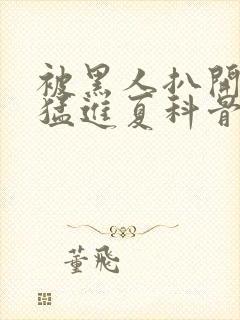 被黑人扒開
猛進夏科普
董飛